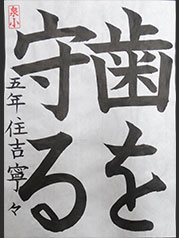 歯を
守る
五年 住吉寧々